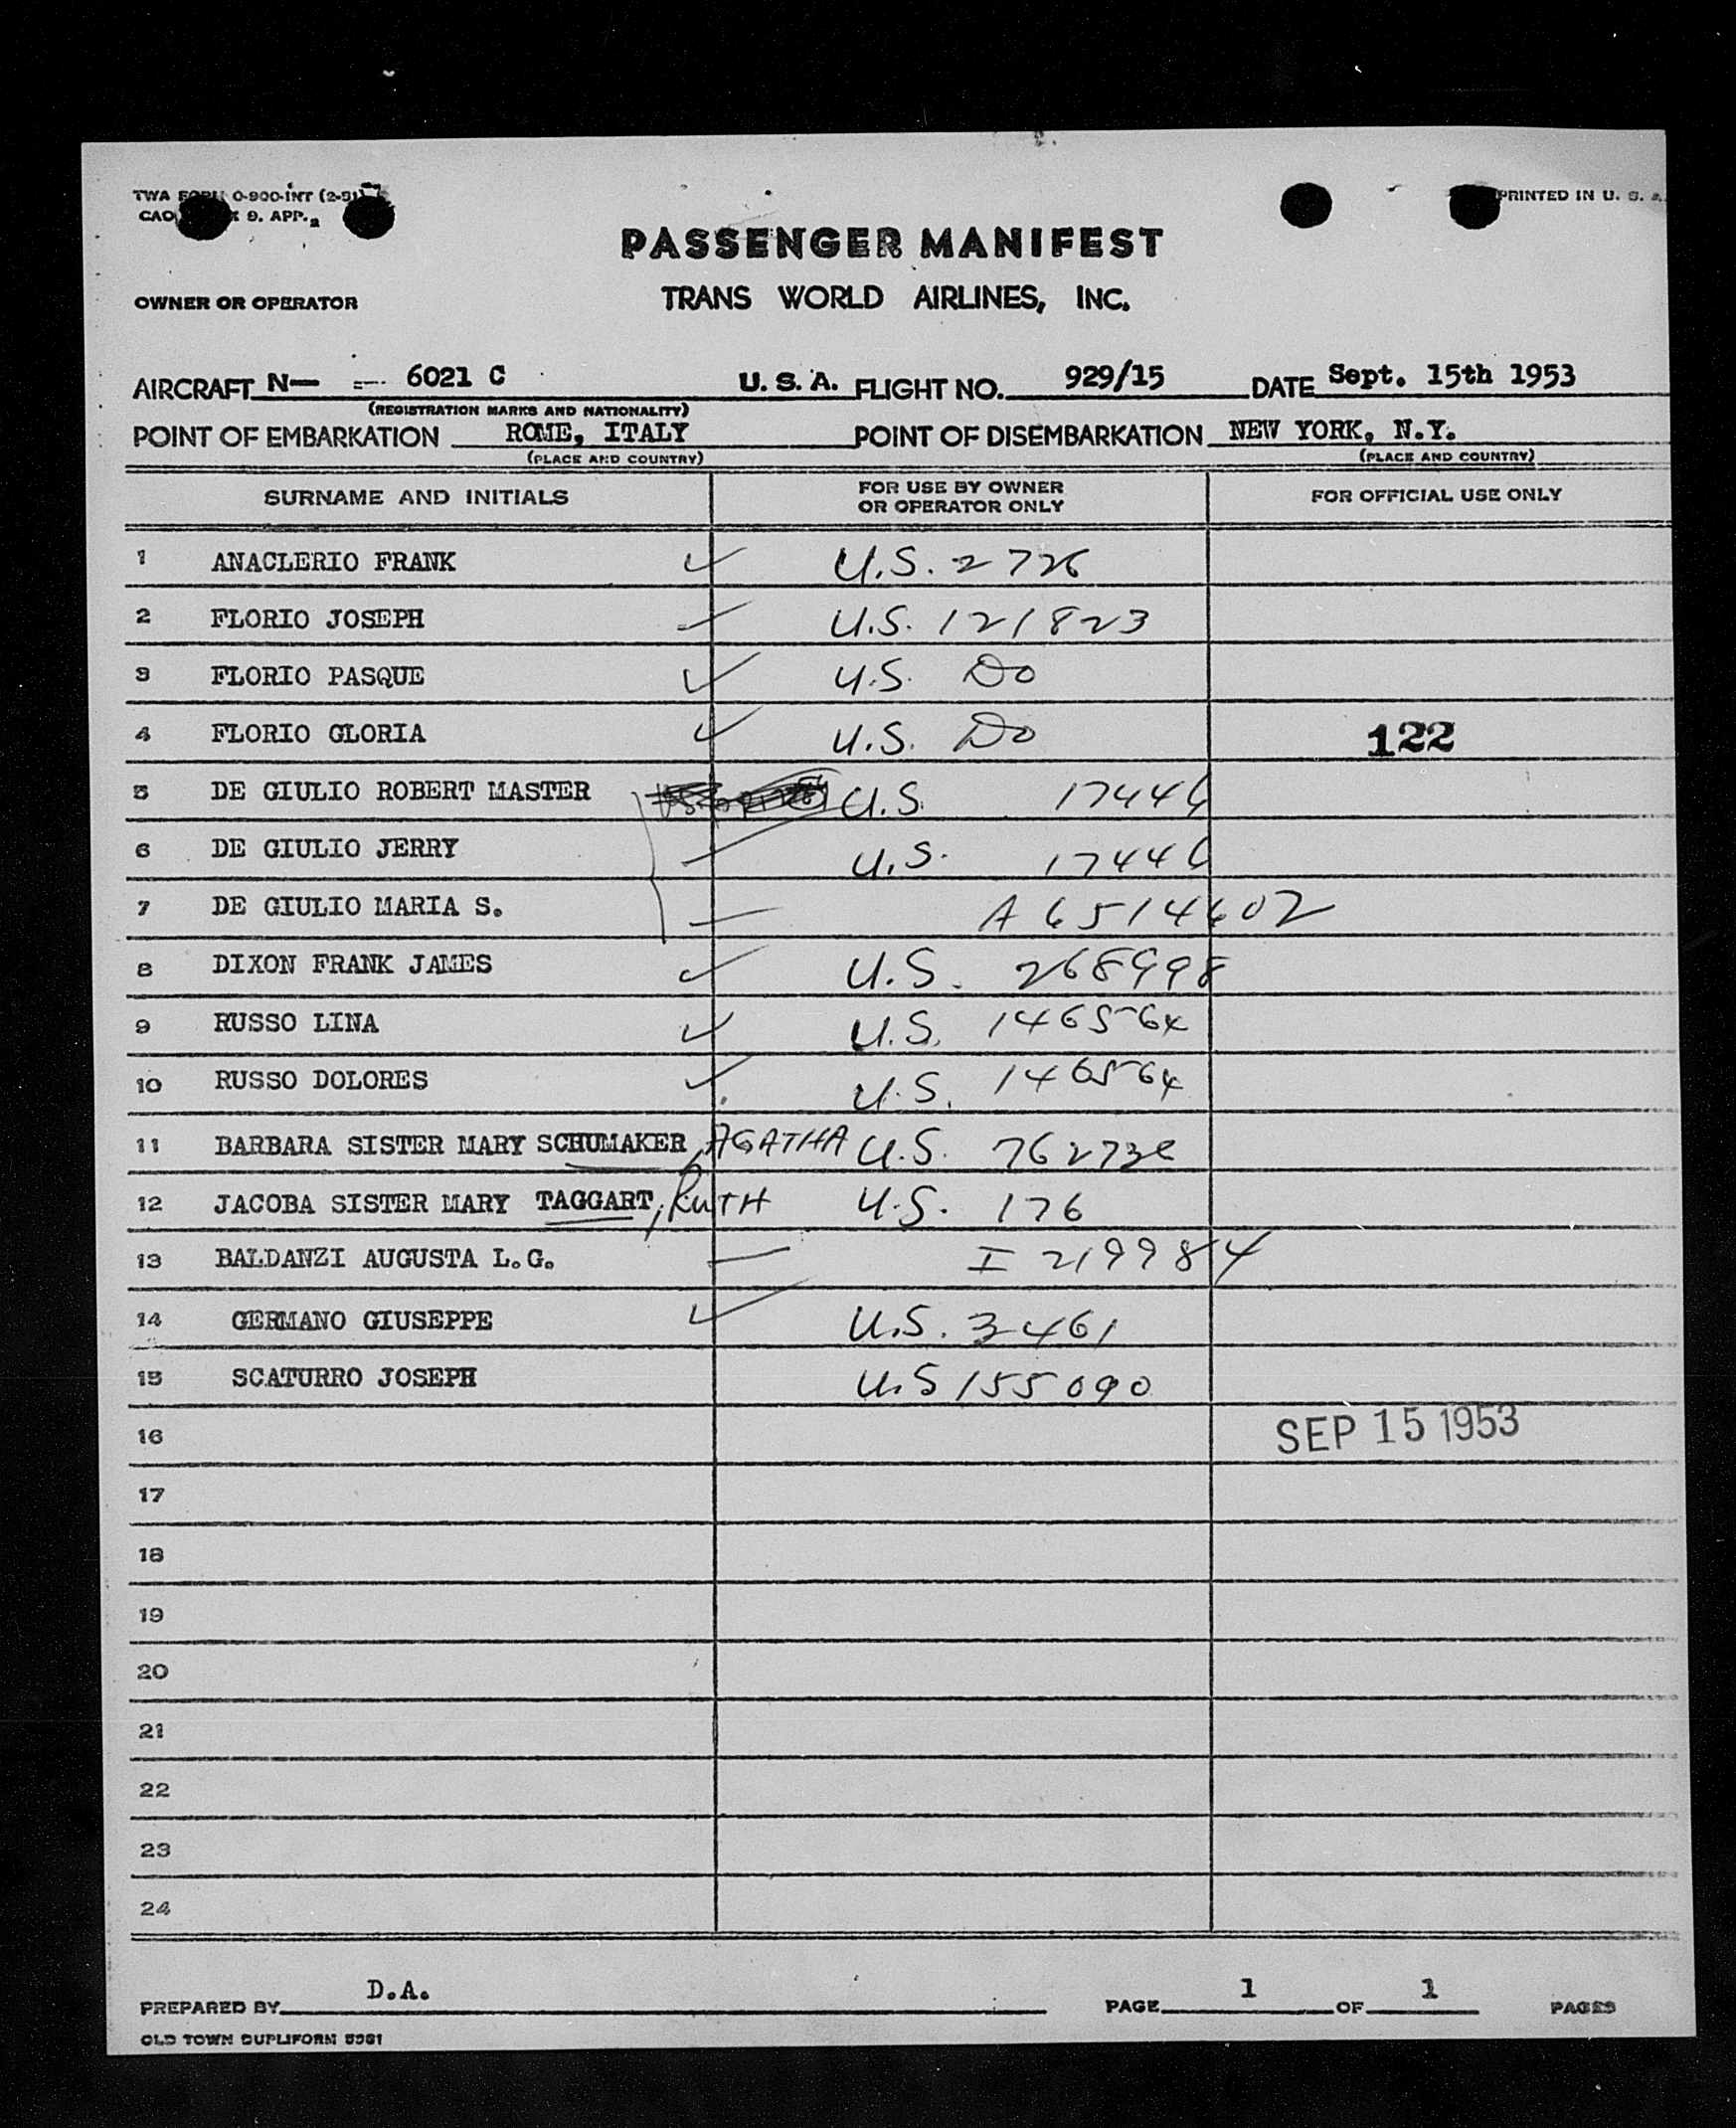 TWA FORM 0-900-INT (2-51)
PRINTED IN U. S. A.
CAO 9. APP. 2
PASSENGER MANIFEST
OWNER OR OPERATOR TRANS WORLD AIRLINES, INC.
AIRCRAFT N— 6021 C U. S. A. FLIGHT NO. 929/15 DATE Sept. 15th 1953
(REGISTRATION MARKS AND NATIONALITY)
POINT OF EMBARKATION ROME, ITALY POINT OF DISEMBARKATION NEW YORK, N.Y.
(PLACE AND COUNTRY) (PLACE AND COUNTRY)
SURNAME AND INITIALS FOR USE BY OWNER OR OPERATOR ONLY FOR OFFICIAL USE ONLY
1 ANACLERIO FRANK U.S. 2726
2 FLORIO JOSEPH U.S. 121823
3 FLORIO PASQUE U.S. Do
4 FLORIO GLORIA U.S. Do 122
5 DE GIULIO ROBERT MASTER U.S. 17446
6 DE GIULIO JERRY U.S. 17446
7 DE GIULIO MARIA S. A 6514602
8 DIXON FRANK JAMES U.S. 268998
9 RUSSO LINA U.S. 146564
10 RUSSO DOLORES U.S. 146564
11 BARBARA SISTER MARY SCHUMAKER, AGATHA U.S.
12 JACOBA SISTER MARY TAGGART, RUTH U.S. 176
13 BALDANZI AUGUSTA L.G. I 219984
14 GERMANO GIUSEPPE U.S. 3461
15 SCATURRO JOSEPH U.S 155090
16 SEP 15 1953
17
18
19
20
21
22
23
24
PREPARED BY D.A. PAGE 1 OF 1 PAGES
OLD TOWN DUPLIFORM